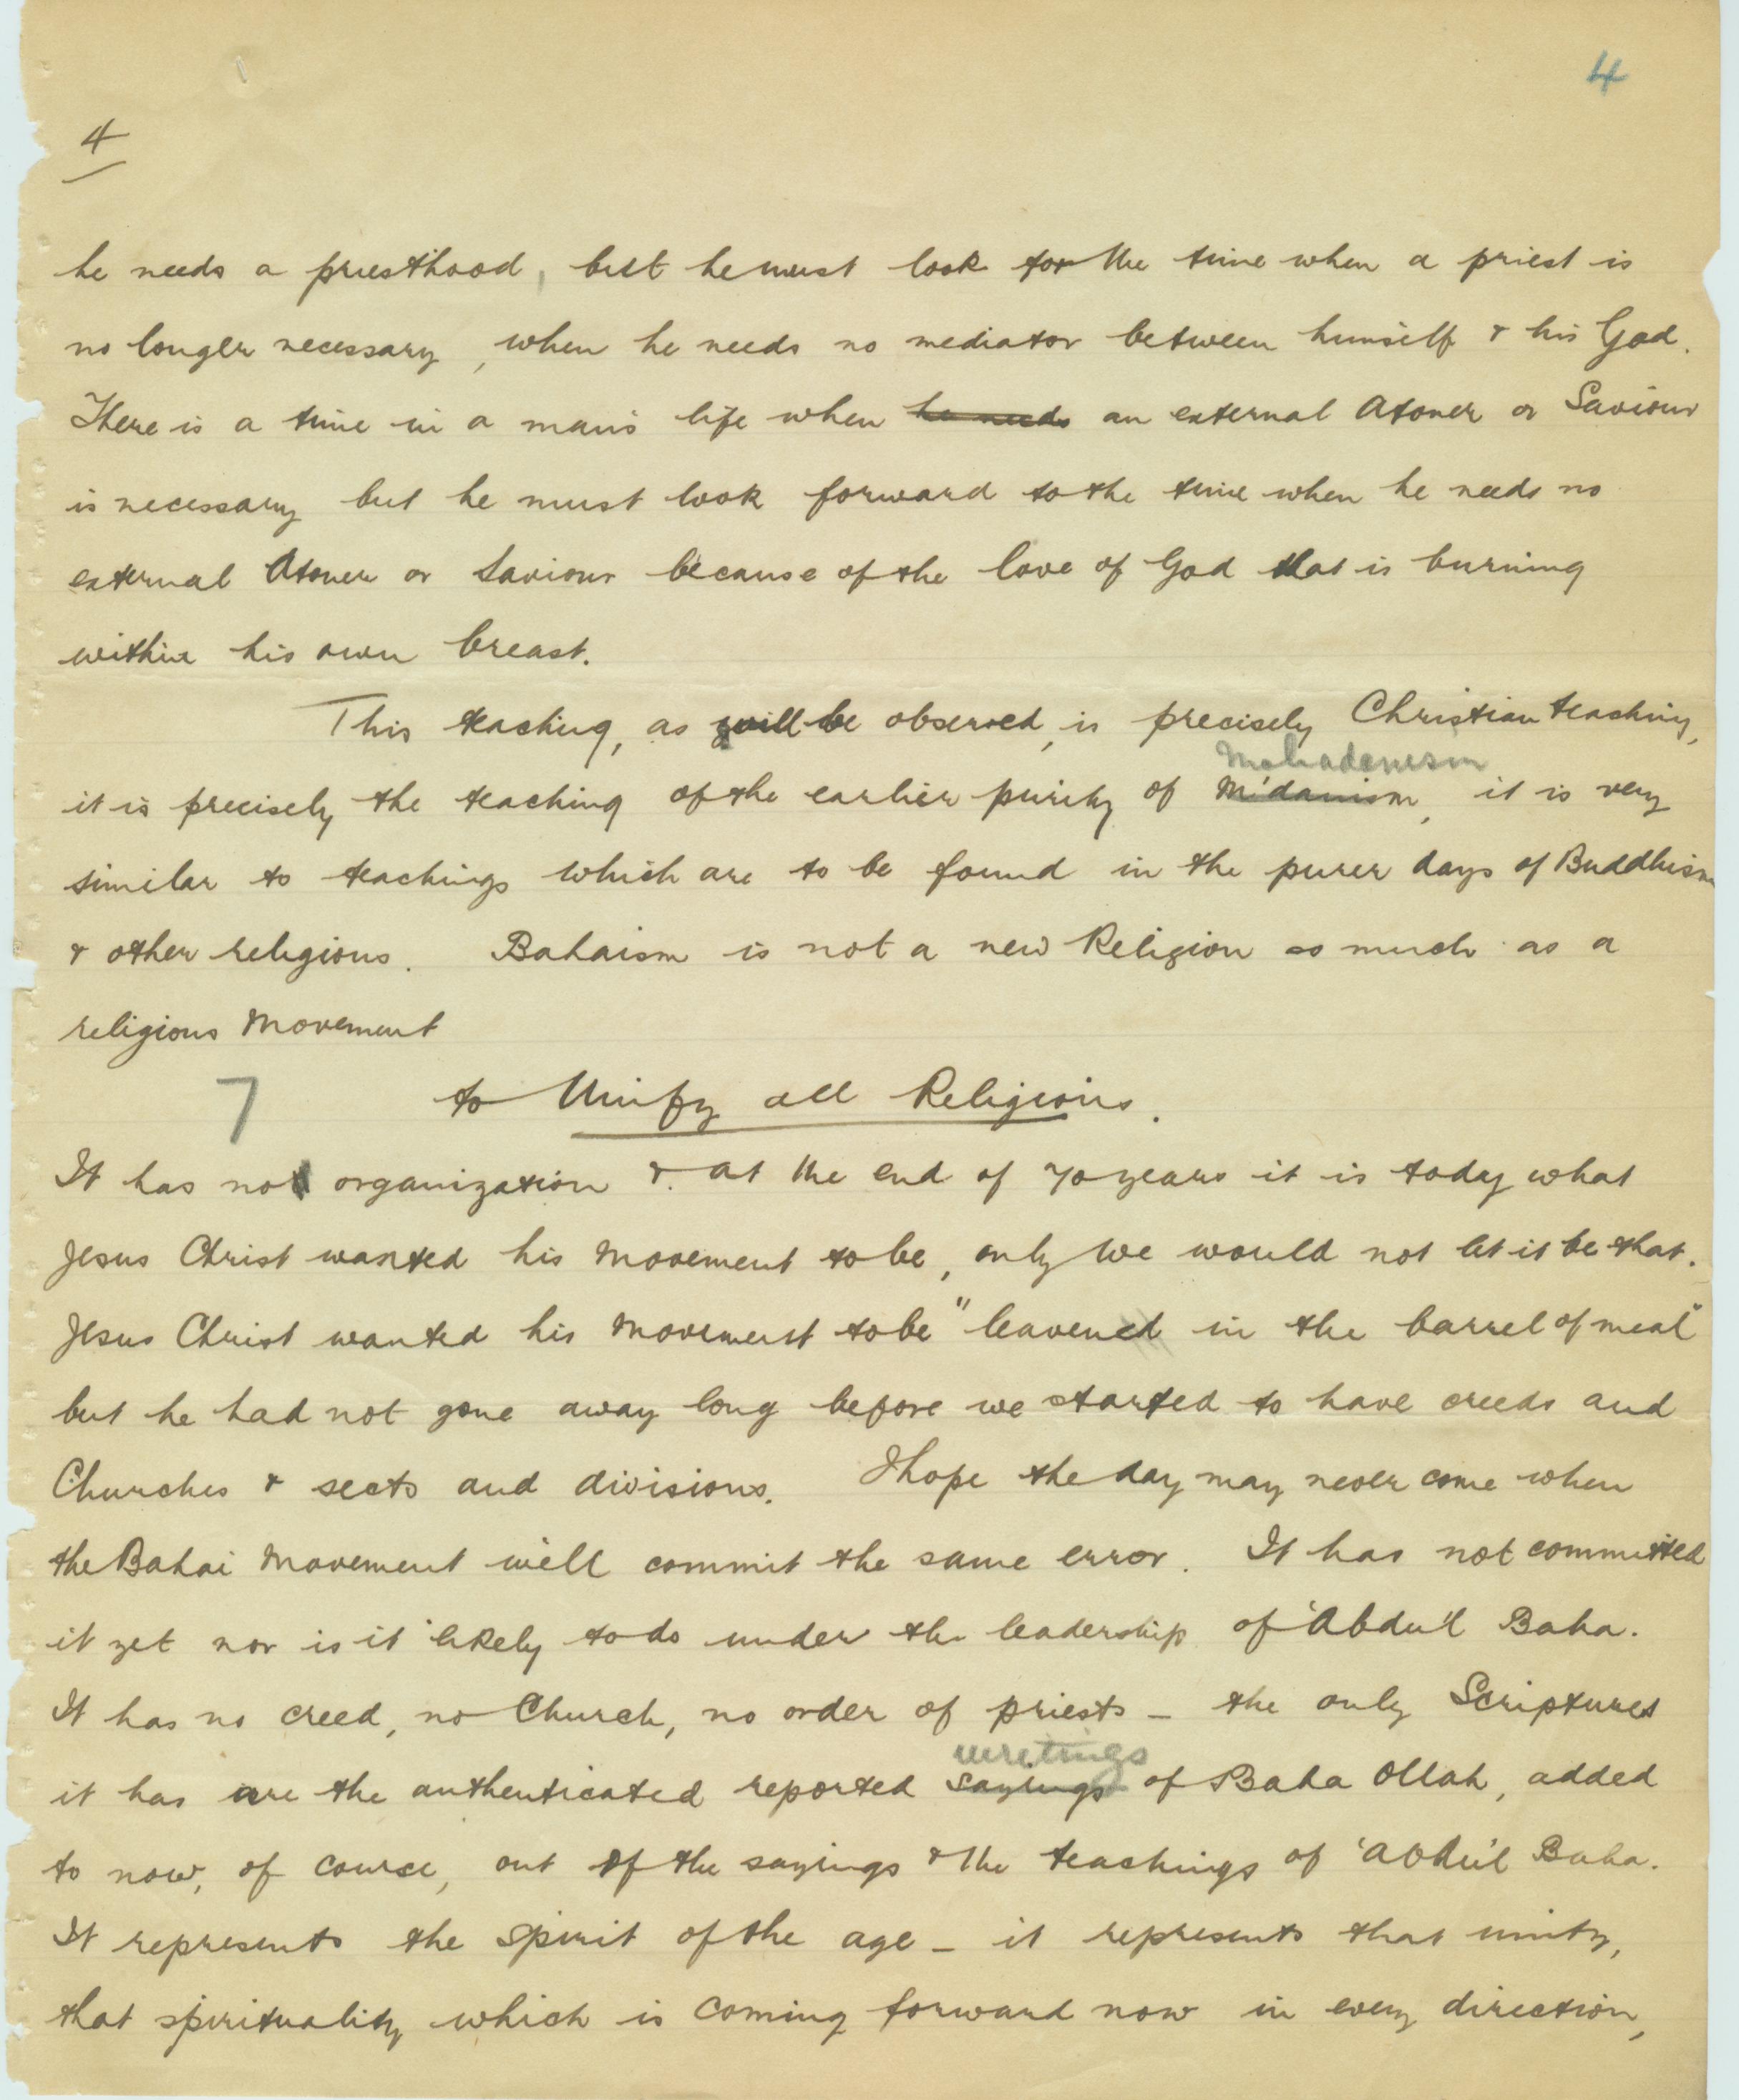 4
4
he needs a priesthood, but he must look for the time when a priest is
no longer necessary, when he needs no mediator between himself & his God.
There is a time in a man's life when he needs an external Atoner or Saviour
is necessary but he must look forward to the time when he needs no
external Atoner or Saviour because of the love of God that is burning
within his own breast.
This teaching, as will be observed, is precisely Christian teaching,
Mohadenism
it is precisely the teaching of the earlier purity of M'danism, it is very
similar to teachings which are to be found in the purer days of Buddhism
& other religions. Bahaism is not a new Religion so much as a
religious Movement
7 to Unify all Religions.
It has no organization & at the end of 70 years it is today what
Jesus Christ wanted his Movement to be, only we would not let it be that.
Jesus Christ wanted his Movement to be "leavened in the barrel of meal"
but he had not gone away long before we started to have creeds and
Churches & sects and divisions. I hope the day may never come when
the Bahai Movement will commit the same error. It has not committed
it yet nor is it likely to do under the leadership of 'Abdu'l Baha.
It has no creed, no Church, no order of priests – the only Scriptures
writings
it has are the authenticated reported sayings of Baha Ollah, added
to now, of course, out of the sayings & the teachings of 'Abdu'l Baha.
It represents the spirit of the age – it represents that unity,
that spirituality which is coming forward now in every direction,